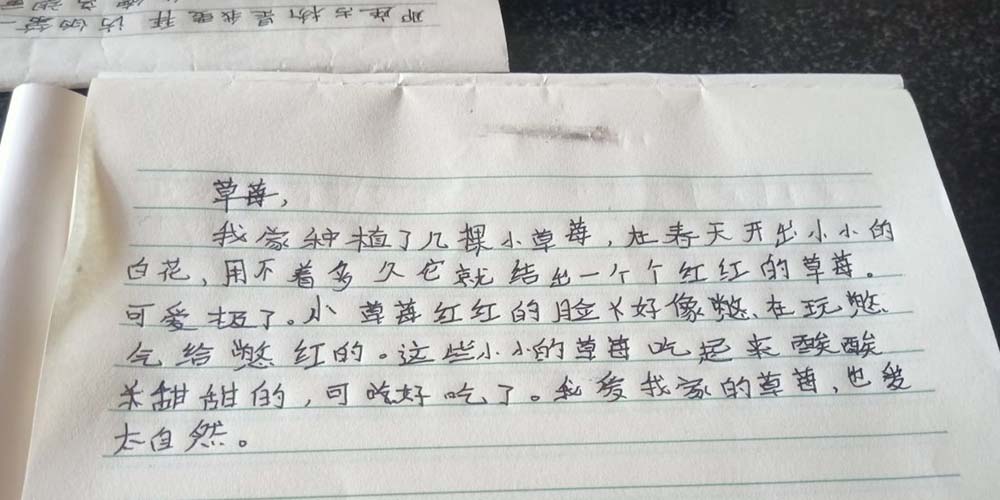 那座古桥是我兔拜访的第一
草莓,
我家种植了几棵小草莓,在春天开出小小的
白花,用不着多久它就结出一个个红红的草莓。
可爱极了。小草莓红红的脸好像憋在玩憋
气给憋红的。这些小小的草莓吃起来酸酸
甜甜的,可好吃了。我爱我家的草莓,也爱
大自然。